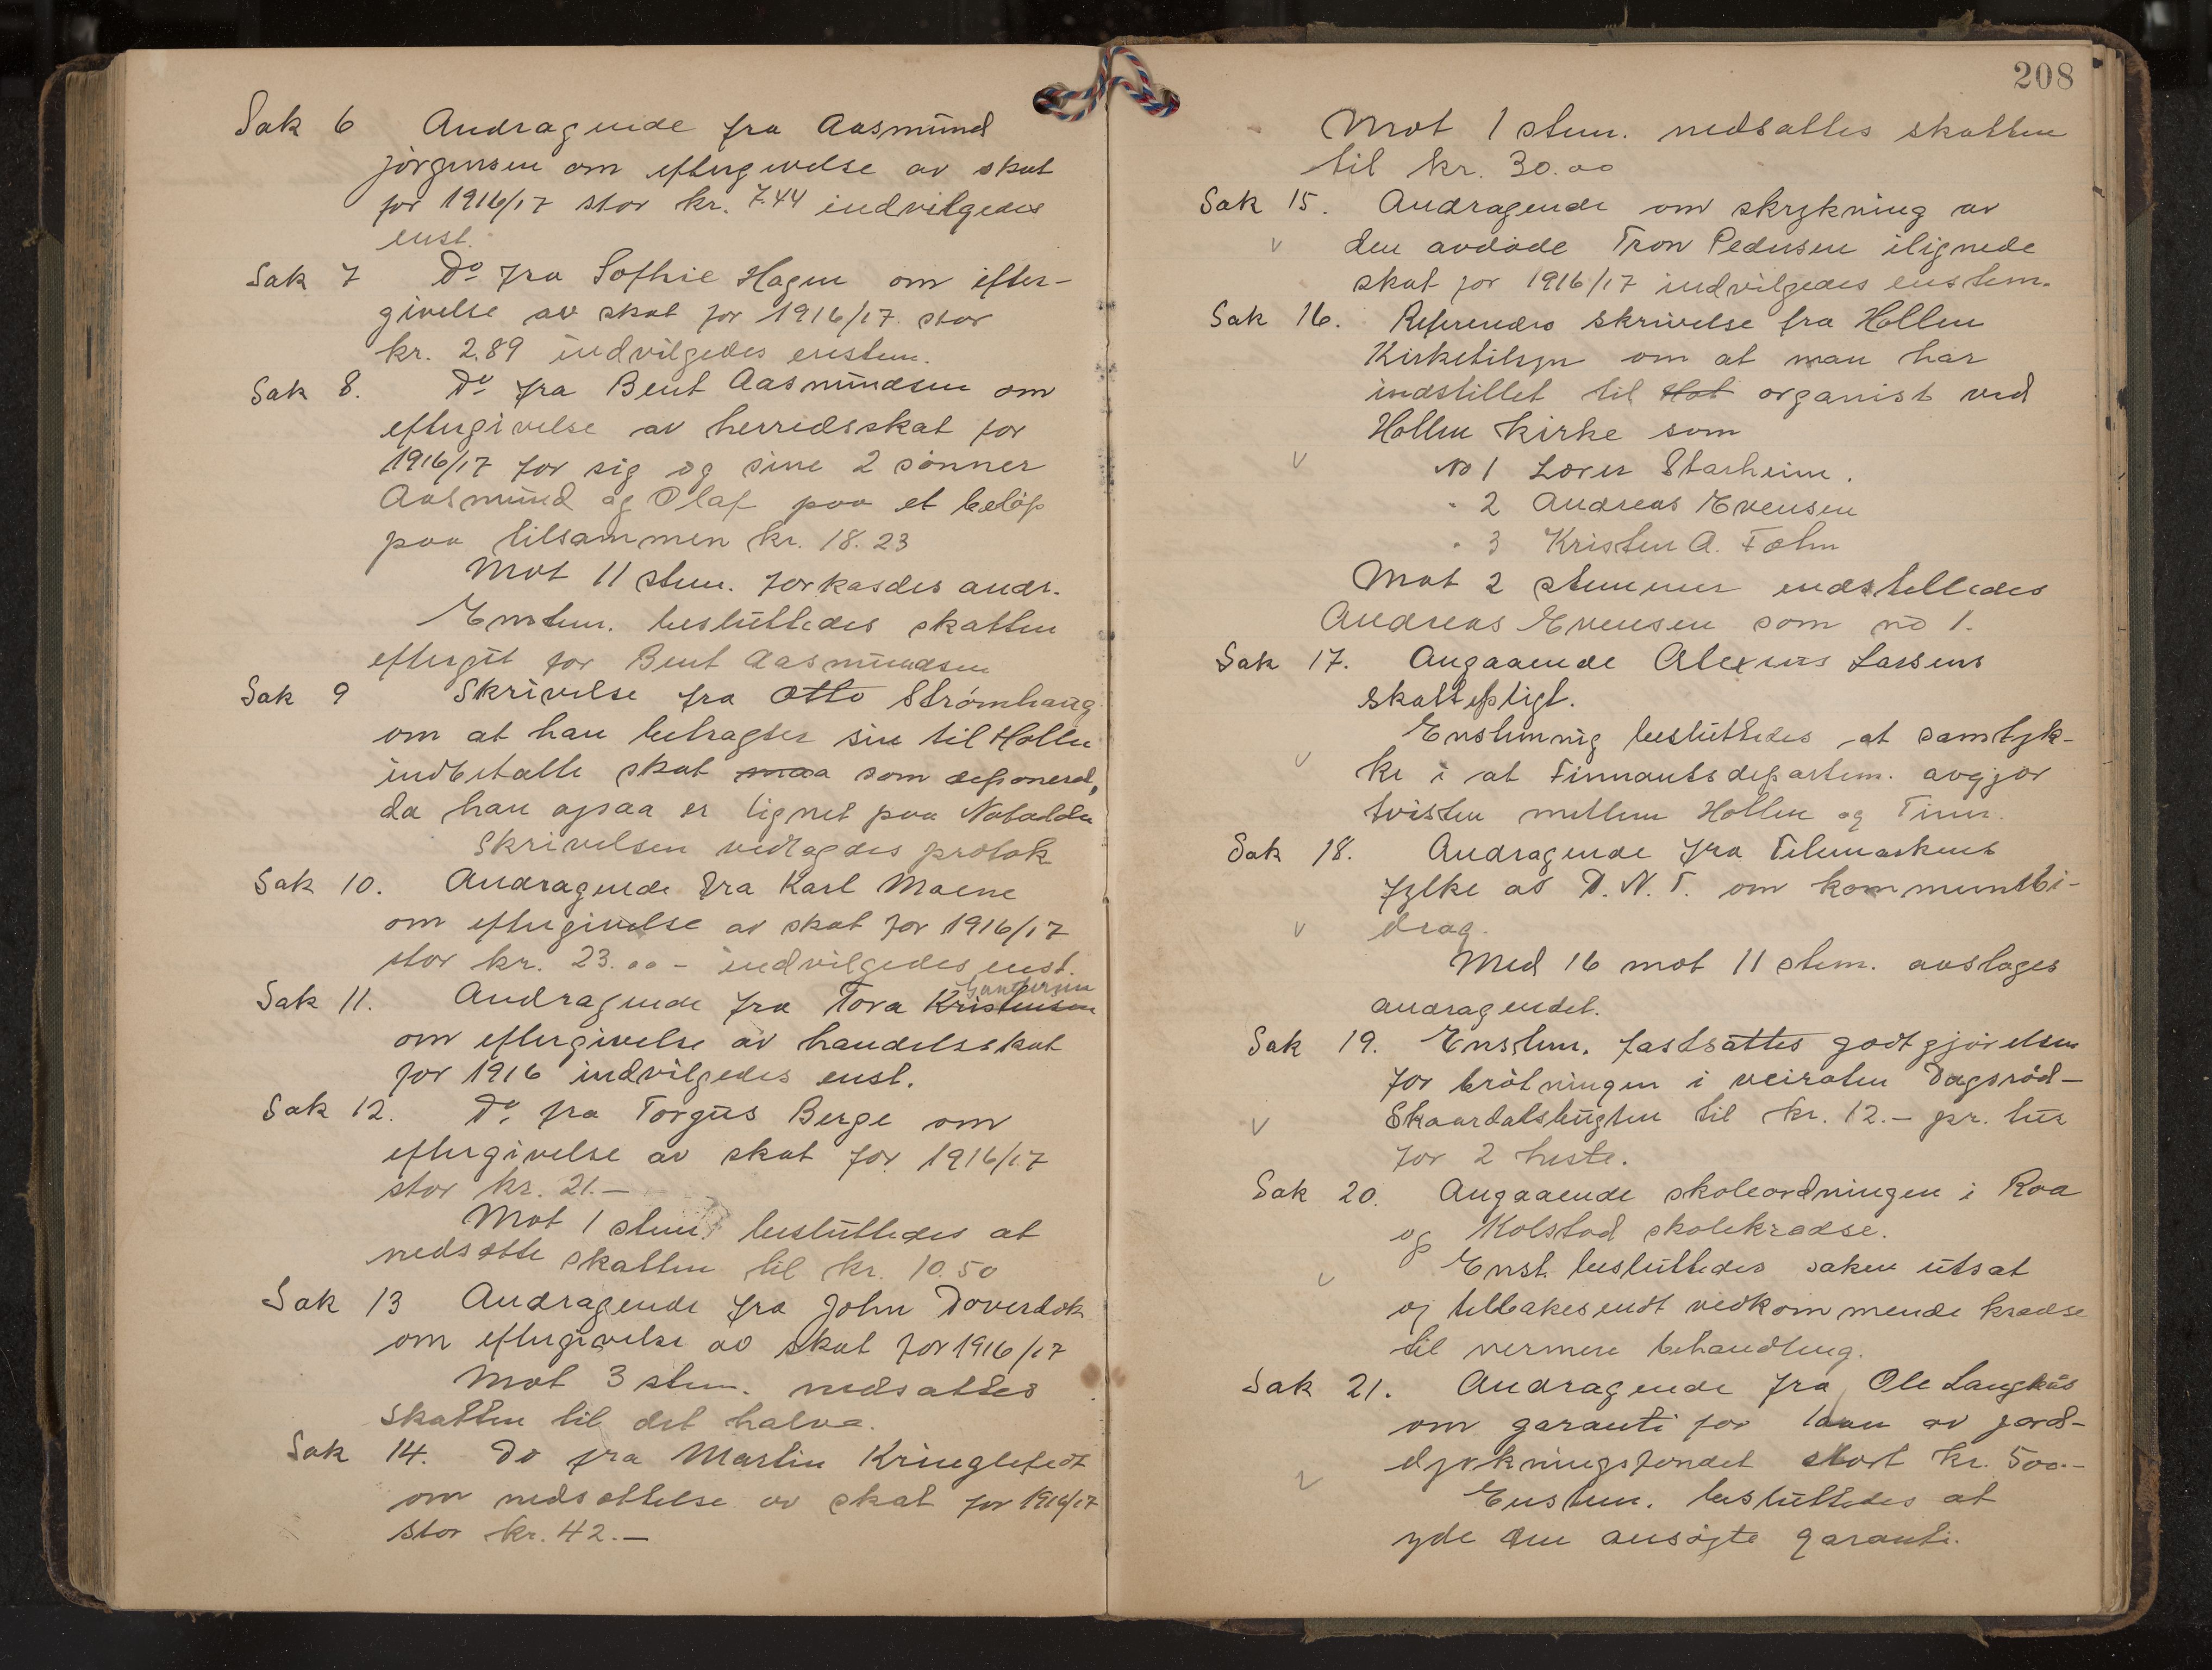 Sak 6 Andragende fra Aasmund
Jörgensen om eftergivelse av skat
for 1916/17 stor kr. 7.44 indvilgedes
enst.
Sak 7 Do fra Sofhie Hagen om efter-
givelse av skat for 1916/17 stor
kr. 2.89 indvilgedes enstem.
Sak 8. Do fra Bent Aasmundsen om
eftergivelse av herredsskat for
1916/17 for sig og sine 2 sönner
Aasmund og Olaf paa et belöp
paa tilsammen kr. 18.23
Mot 11 stem. forkasdes andr.
Enstem. besluttedes skatten
eftergit for Bent Aasmundsen
Sak 9 Skrivelse fra Otto Strömhaug
om at han betragter sin til Hollen
indbetalte skat maa som deponeret,
da han ogsaa er lignet paa Notodden
Skrivelsen vedlagdes protok
Sak 10. Andragende fra Karl Moene
om eftergivelse av skat for 1916/17
stor kr. 23.00 - indvilgedes enst.
Gundersen
Sak 11. Andragende fra Tora Kristensen
om eftergivelse av handelsskat
for 1916 indvilgedes enst.
Sak 12. Do fra Torgus Berge om
eftergivelse av skat for 1916/17
stor kr. 21.-
Mot 1 stem. besluttedes at
nedsætte skatten til kr. 10.50
Sak 13 Andragende fra John Doverdok
om eftergivelse av skat for 1916/17
Mot 3 stem. nedsattes
skatten til det halve.
Sak 14. Do fra Martin Kringlefedt
om nedsættelse av skat for 1916/17
stor kr. 42.-
208
Mot 1 stem. nedsattes skatten
til kr. 30.00
Sak 15. Andragende om strykning av
den avdöde Tron Pedersen ilignede
skat for 1916/17 indvilgedes enstem.
Sak 16. Refereredes skrivelse fra Hollen
Kirketilsyn om at man har
indstillet til Hol organist ved
Hollen kirke som
No 1 Lærer Starheim.
" 2 Andreas Evensen
" 3 Kristen A. Fæhn
Mot 2 stemmer indstilledes
Andreas Evensen som no 1.
Sak 17. Angaaende Alexius Lassens
skattepligt.
Enstemmig besluttedes at samtyk-
ke i at Finnantsdepartem. avgjør
tvisten mellem Hollen og Tinn.
Sak 18. Andragende fra Telemarkens
fylke av D. N. T. om kommunebi-
drag.
Med 16 mot 11 stem. avsloges
andragendet.
Sak 19. Enstem. fastsattes godtgjörelsen
for brötningen i veiroten Dagsröd-
Skaardalsbugten til kr. 12.- pr. tur
for 2 heste.
Sak 20. Angaaende skoleordningen i Roa
og Kolstad skolekredse.
Enst. besluttedes saken utsat
og tilbakesendt vedkommende kredse
til nermere behandling.
Sak 21. Andragende fra Ole Langkås
om garanti for laan av jord-
dyrkningsfondet stort kr. 500.-
Enstem. besluttedes at
yde den ansögte garanti.